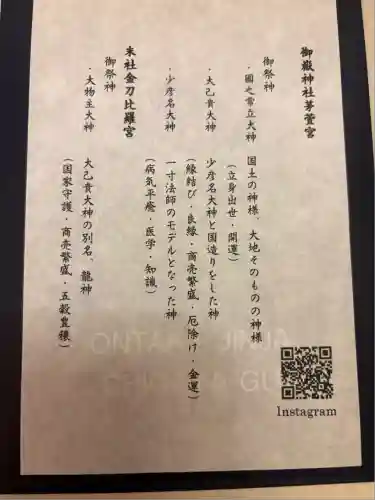 御嶽神社茅萱宮
御祭神
・國之常立大神 国土の神様、大地そのものの神様
(立身出世・開運)
・大己貴大神 少彦名大神と国造りをした神
(縁結び・良縁・商売繁盛・厄除け・金運)
・少彦名大神 一寸法師のモデルとなった神
(病気平癒・医学・知識)
末社金刀比羅宮
御祭神
・大物主大神 大己貴大神の別名、龍神
(国家守護・商売繁盛・五穀豊穣)
ONTAKE JINJA
Instagram